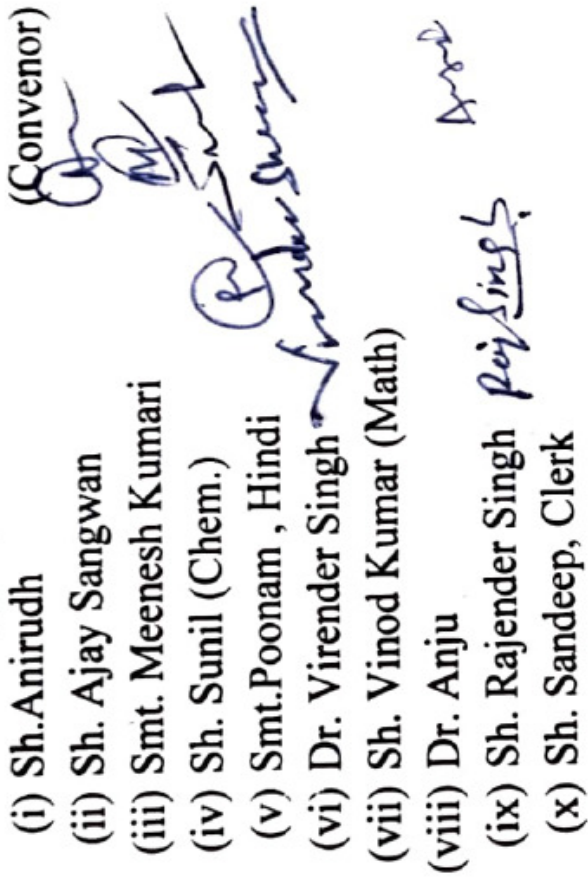 (i) Sh.Anirudh (Convenor)
(ii) Sh. Ajay Sangwan
(iii) Smt. Meenesh Kumari
(iv) Sh. Sunil (Chem.) Sunil
(v) Smt.Poonam , Hindi
(vi) Dr. Virender Singh
(vii) Sh. Vinod Kumar (Math)
(viii) Dr. Anju
(ix) Sh. Rajender Singh Raj Singh
(x) Sh. Sandeep, Clerk